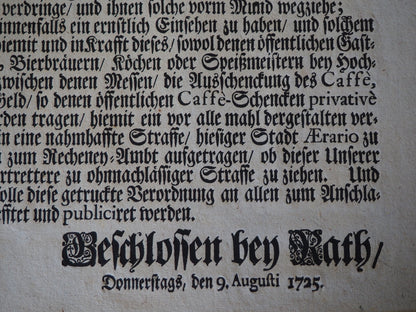 verdringe/ und ihnen solche vorm Mund wegziehe;
innenfalls ein ernstlich Einsehen zu haben/ und solchem
hiemit und in Krafft dieses/ sowol denen öffentlichen Gast-
, Bierbräuern/ Köchen oder Speißmeistern bey Hoch-
zwischen denen Messen/ die Ausschenckung des Caffè,
Geld/ so denen öffentlichen Caffè-Schencken privativè
rden tragen/ hiemit ein vor alle mahl dergestalten ver-
in eine nahmhaffte Straffe/ hiesiger Stadt Ærario zu
zum Recheney-Ambt aufgetragen/ ob dieser Unserer
rtrettere zu ohnnachlässiger Straffe zu ziehen. Und
olle diese getruckte Verordnung an allen zum Anschla-
efftet und publiciret werden.
Geschlossen bey Rath/
Donnerstags, den 9. Augusti 1725.